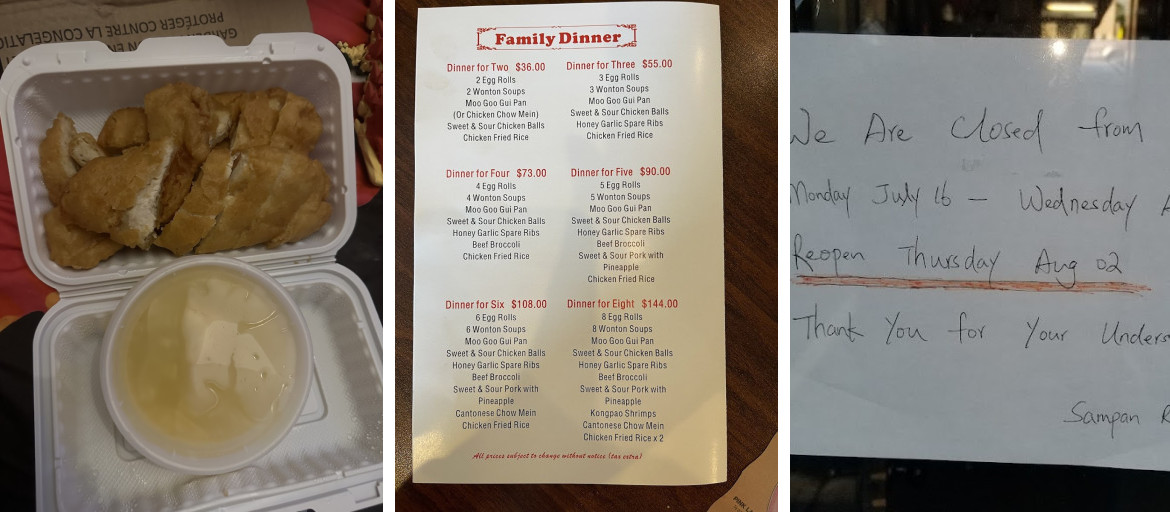 PROTÉGER CONTRE LA CONGÉLATION
Family Dinner
Dinner for Two $36.00
2 Egg Rolls
2 Wonton Soups
Moo Goo Gui Pan
(Or Chicken Chow Mein)
Sweet & Sour Chicken Balls
Chicken Fried Rice
Dinner for Three $55.00
3 Egg Rolls
3 Wonton Soups
Moo Goo Gui Pan
Sweet & Sour Chicken Balls
Honey Garlic Spare Ribs
Chicken Fried Rice
Dinner for Four $73.00
4 Egg Rolls
4 Wonton Soups
Moo Goo Gui Pan
Sweet & Sour Chicken Balls
Honey Garlic Spare Ribs
Beef Broccoli
Chicken Fried Rice
Dinner for Five $90.00
5 Egg Rolls
5 Wonton Soups
Moo Goo Gui Pan
Sweet & Sour Chicken Balls
Honey Garlic Spare Ribs
Beef Broccoli
Sweet & Sour Pork with
Pineapple
Chicken Fried Rice
Dinner for Six $108.00
6 Egg Rolls
6 Wonton Soups
Moo Goo Gui Pan
Sweet & Sour Chicken Balls
Honey Garlic Spare Ribs
Beef Broccoli
Sweet & Sour Pork with
Pineapple
Cantonese Chow Mein
Chicken Fried Rice
Dinner for Eight $144.00
8 Egg Rolls
8 Wonton Soups
Moo Goo Gui Pan
Sweet & Sour Chicken Balls
Honey Garlic Spare Ribs
Beef Broccoli
Sweet & Sour Pork with
Pineapple
Kongpao Shrimps
Cantonese Chow Mein
Chicken Fried Rice x 2
All prices subject to change without notice (tax extra)
We Are Closed from
Monday July 16 - Wednesday A
Reopen Thursday Aug 02
Thank You for Your Unders
Sampan R